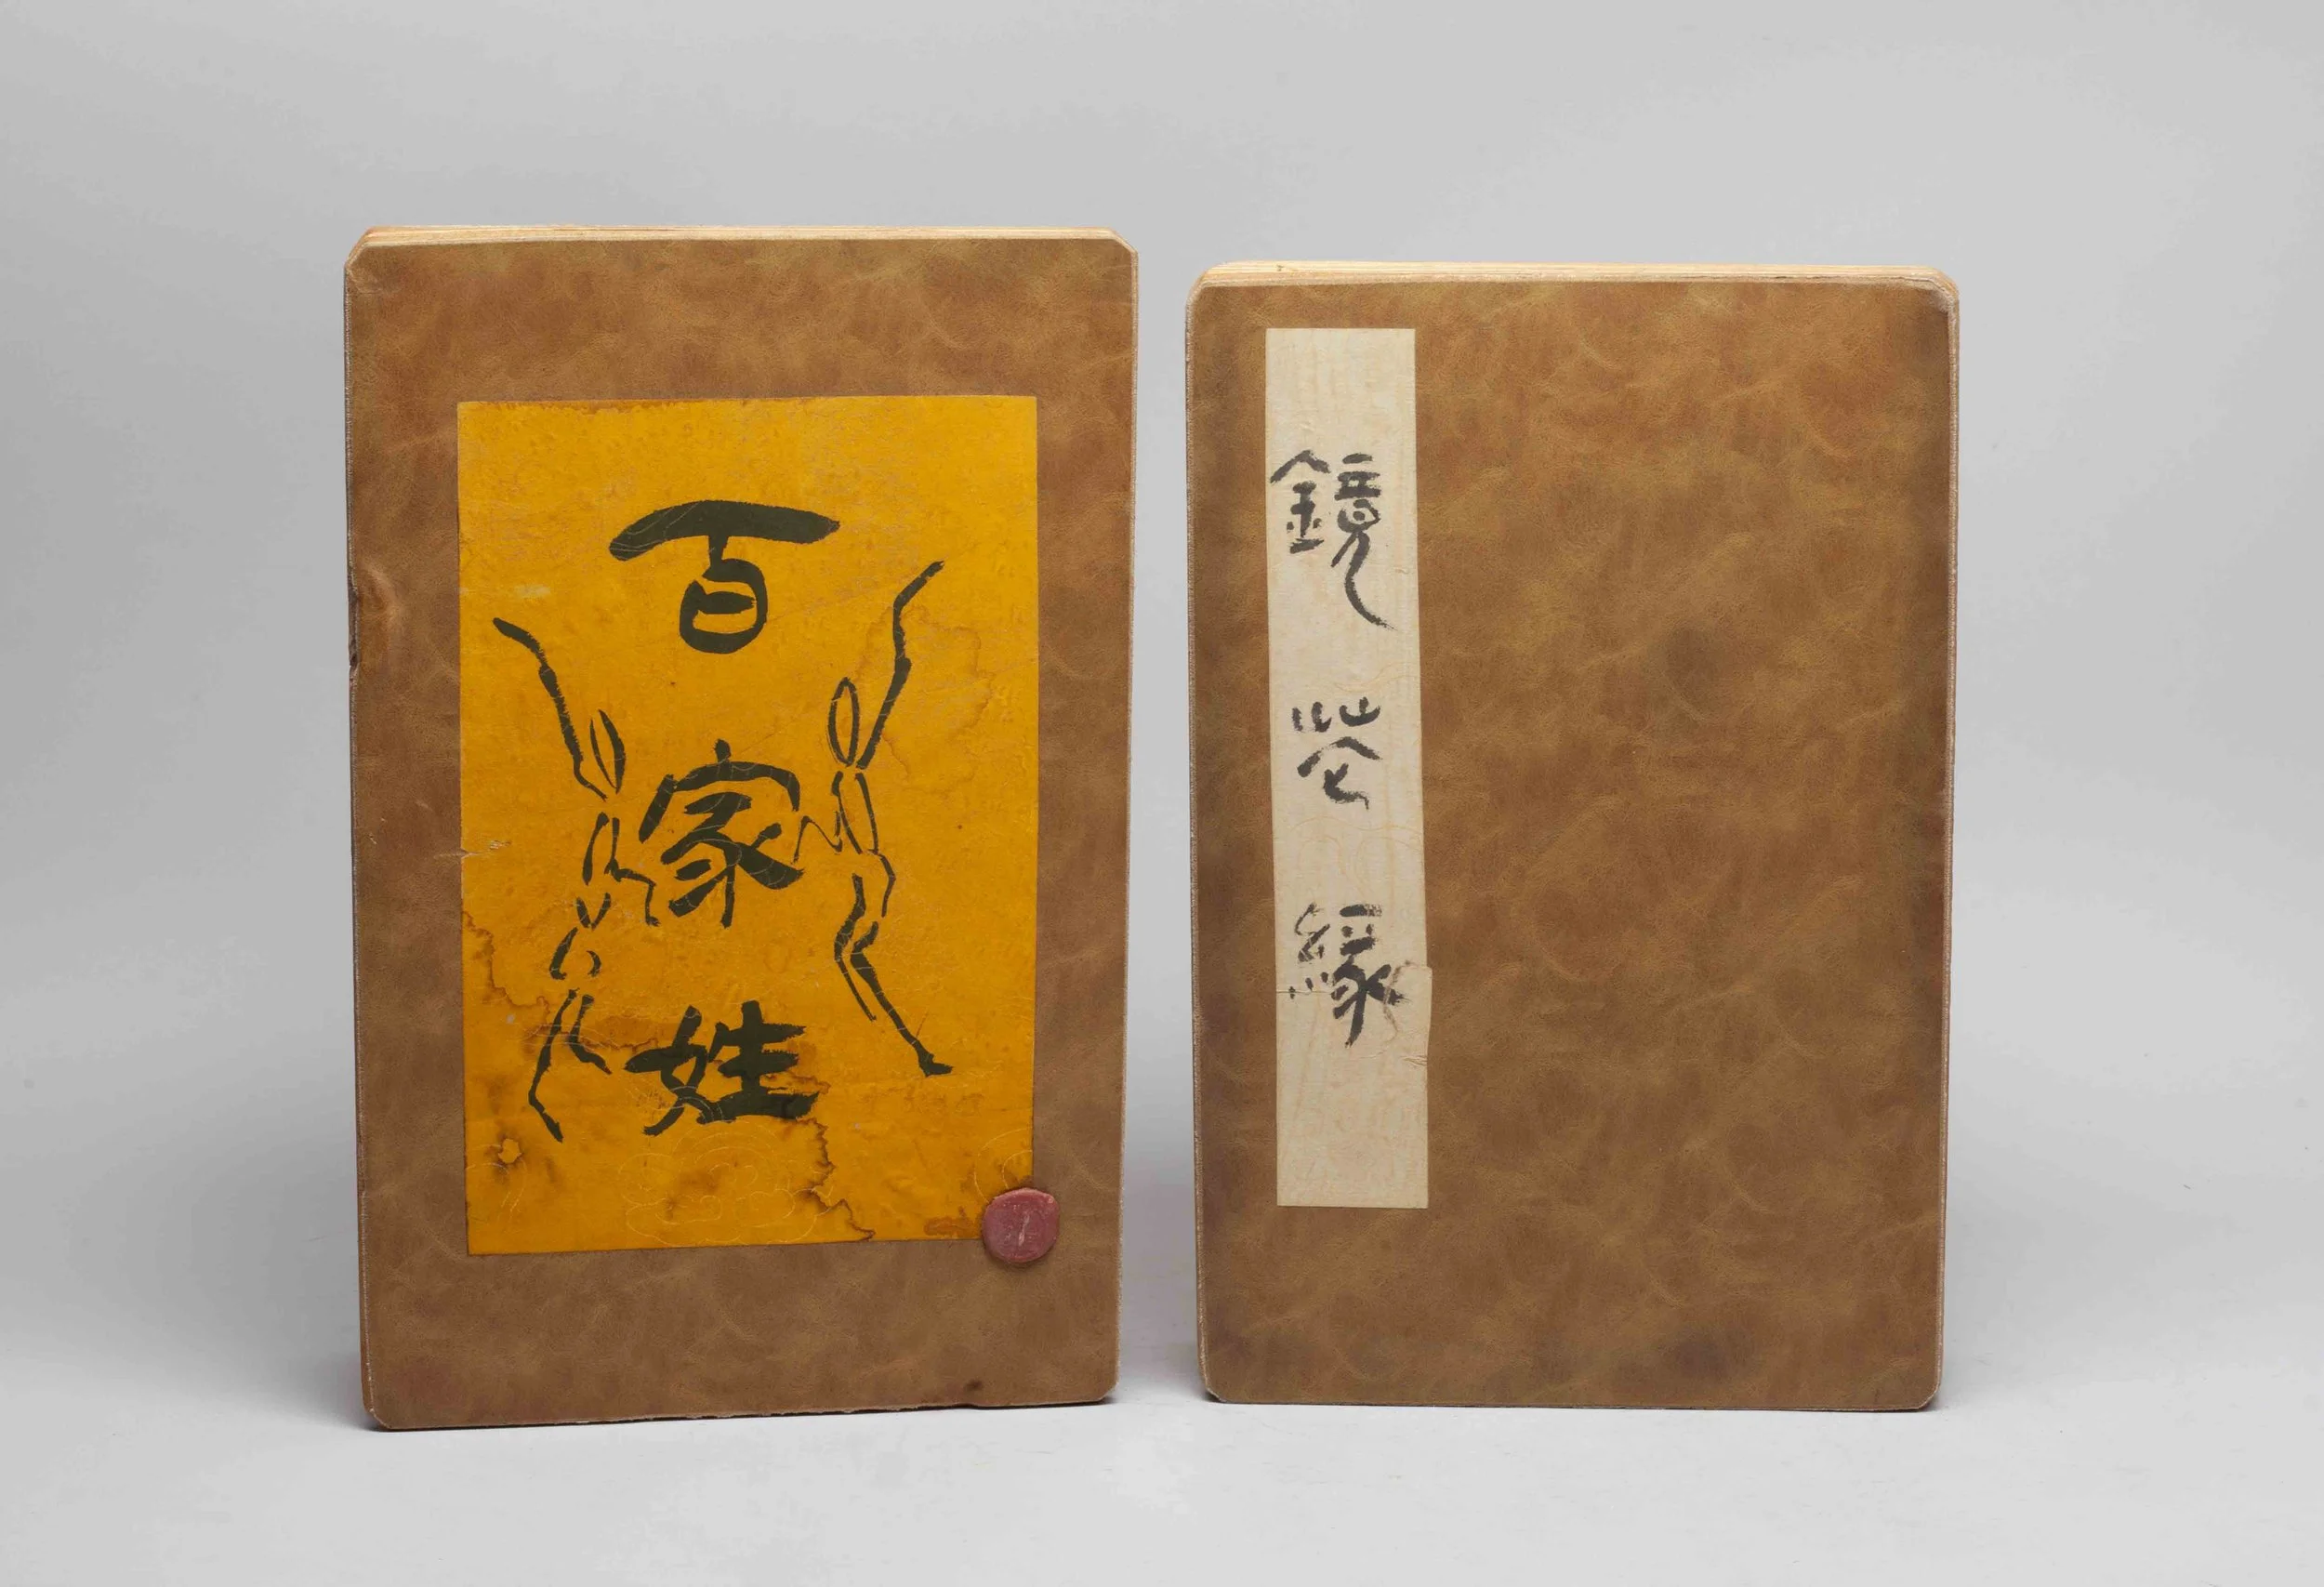 百家姓
鏡花緣